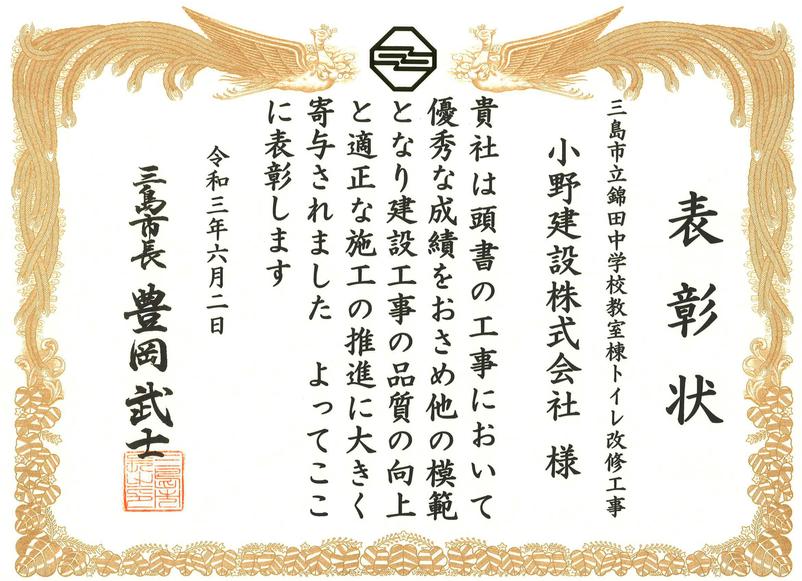 表彰状
三島市立錦田中学校教室棟トイレ改修工事
小野建設株式会社 様
貴社は頭書の工事において
優秀な成績をおさめ他の模範
となり建設工事の品質の向上
と適正な施工の推進に大きく
寄与されました よってここ
に表彰します
令和三年六月二日
三島市長 豊岡武士